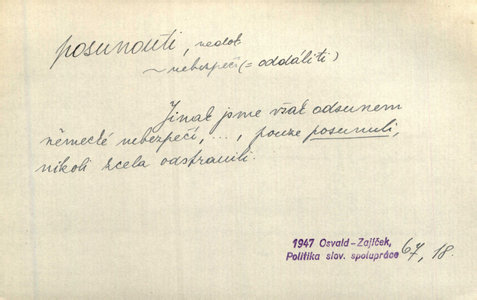 posunouti, nedok
~ nebezpečí (= oddáliti)
Jinak jsme však odsunem
německé nebezpečí, ..., pouze posunuli,
nikoli zcela odstranili.
1947 Osvald-Zajíček,
Politika slov. spolupráce 67, 18.